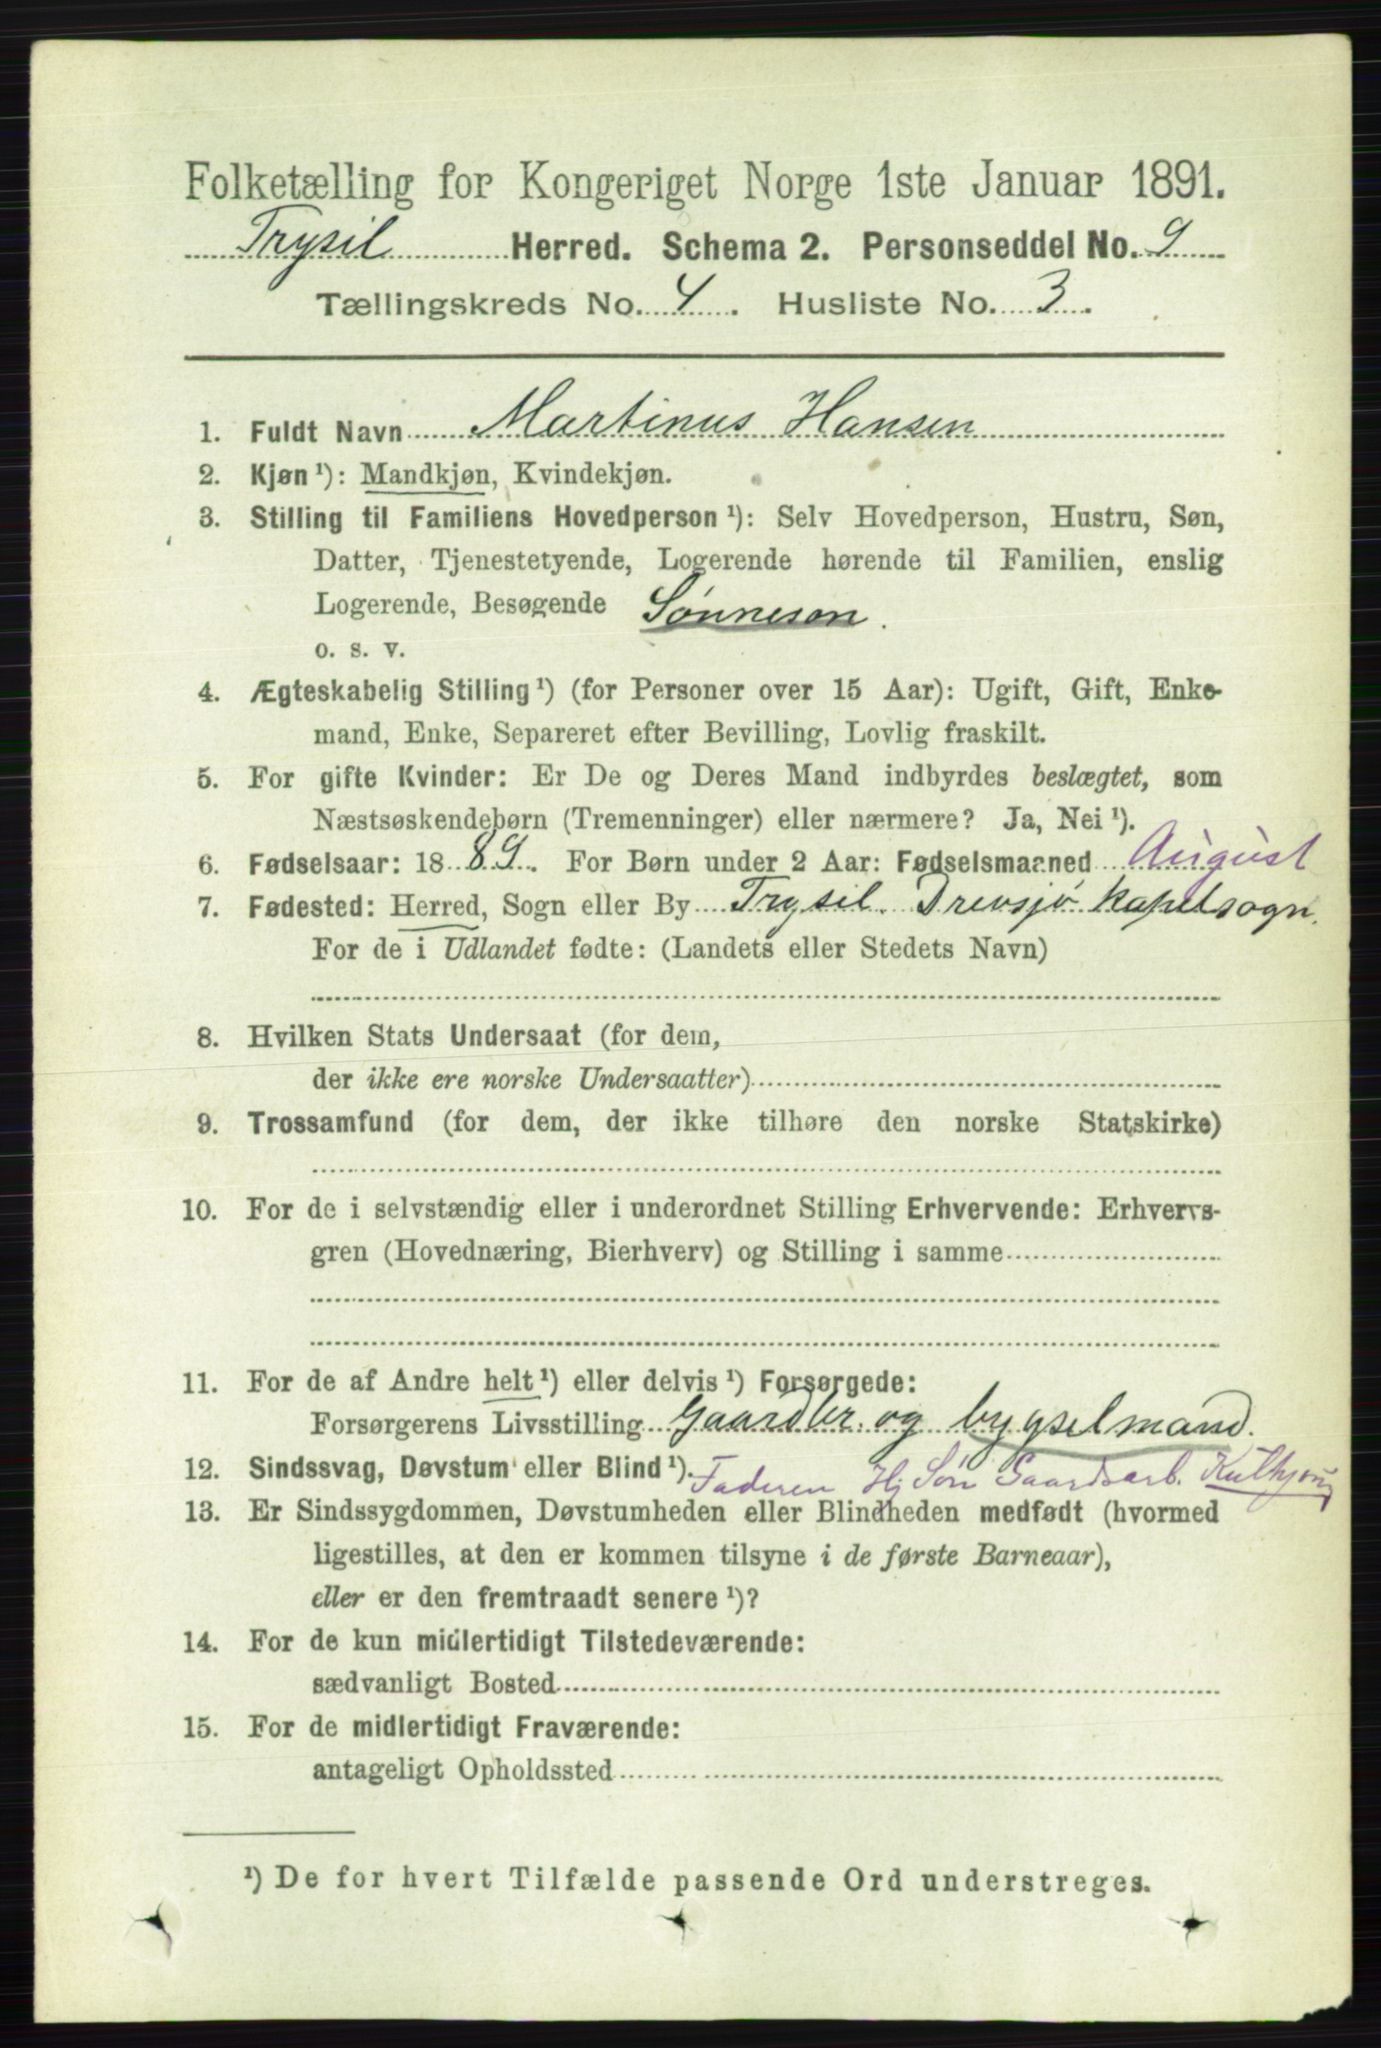 Folketælling for Kongeriget Norge 1ste Januar 1891.
Trysil Herred. Schema 2. Personseddel No. 9
Tællingskreds No. 4. Husliste No. 3.
1. Fuldt Navn Martinus Hansen
2. Kjøn ¹): Mandkjøn, Kvindekjøn.
3. Stilling til Familiens Hovedperson ¹): Selv Hovedperson, Hustru, Søn,
Datter, Tjenestetyende, Logerende hørende til Familien, enslig
Logerende, Besøgende Sønneson.
o. s. v.
4. Ægteskabelig Stilling ¹) (for Personer over 15 Aar): Ugift, Gift, Enke-
mand, Enke, Separeret efter Bevilling, Lovlig fraskilt.
5. For gifte Kvinder: Er De og Deres Mand indbyrdes beslægtet, som
Næstsøskendebørn (Tremenninger) eller nærmere? Ja, Nei ¹).
6. Fødselsaar: 1889. For Børn under 2 Aar: Fødselsmaaned August
7. Fødested: Herred, Sogn eller By Trysil. Drevsjø Kapelsogn.
For de i Udlandet fødte: (Landets eller Stedets Navn)
8. Hvilken Stats Undersaat (for dem,
der ikke ere norske Undersaatter)
9. Trossamfund (for dem, der ikke tilhøre den norske Statskirke)
10. For de i selvstændig eller i underordnet Stilling Erhvervende: Erhvervs-
gren (Hovednæring, Bierhverv) og Stilling i samme
11. For de af Andre helt ¹) eller delvis ¹) Forsørgede:
Forsørgerens Livsstilling Gaardbr. og bygselmand.
12. Sindssvag, Døvstum eller Blind ¹). Faderen Hj Søn Gaardsarb.
13. Er Sindssygdommen, Døvstumheden eller Blindheden medfødt (hvormed
ligestilles, at den er kommen tilsyne i de første Barneaar),
eller er den fremtraadt senere ¹)?
14. For de kun midlertidigt Tilstedeværende:
sædvanligt Bosted
15. For de midlertidigt Fraværende:
antageligt Opholdssted
¹) De for hvert Tilfælde passende Ord understreges.